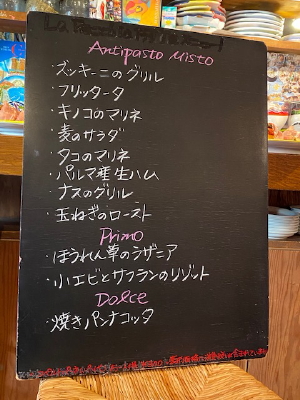 La
Antipasto Misto
・ズッキーニのグリル
・フリッタータ
・キノコのマリネ
・麦のサラダ
・タコのマリネ
・パルマ産生ハム
・ナスのグリル
・玉ねぎのロースト
Primo
・ほうれん草のラザニア
・小エビとサフランのリゾット
Dolce
・焼きパンナコッタ